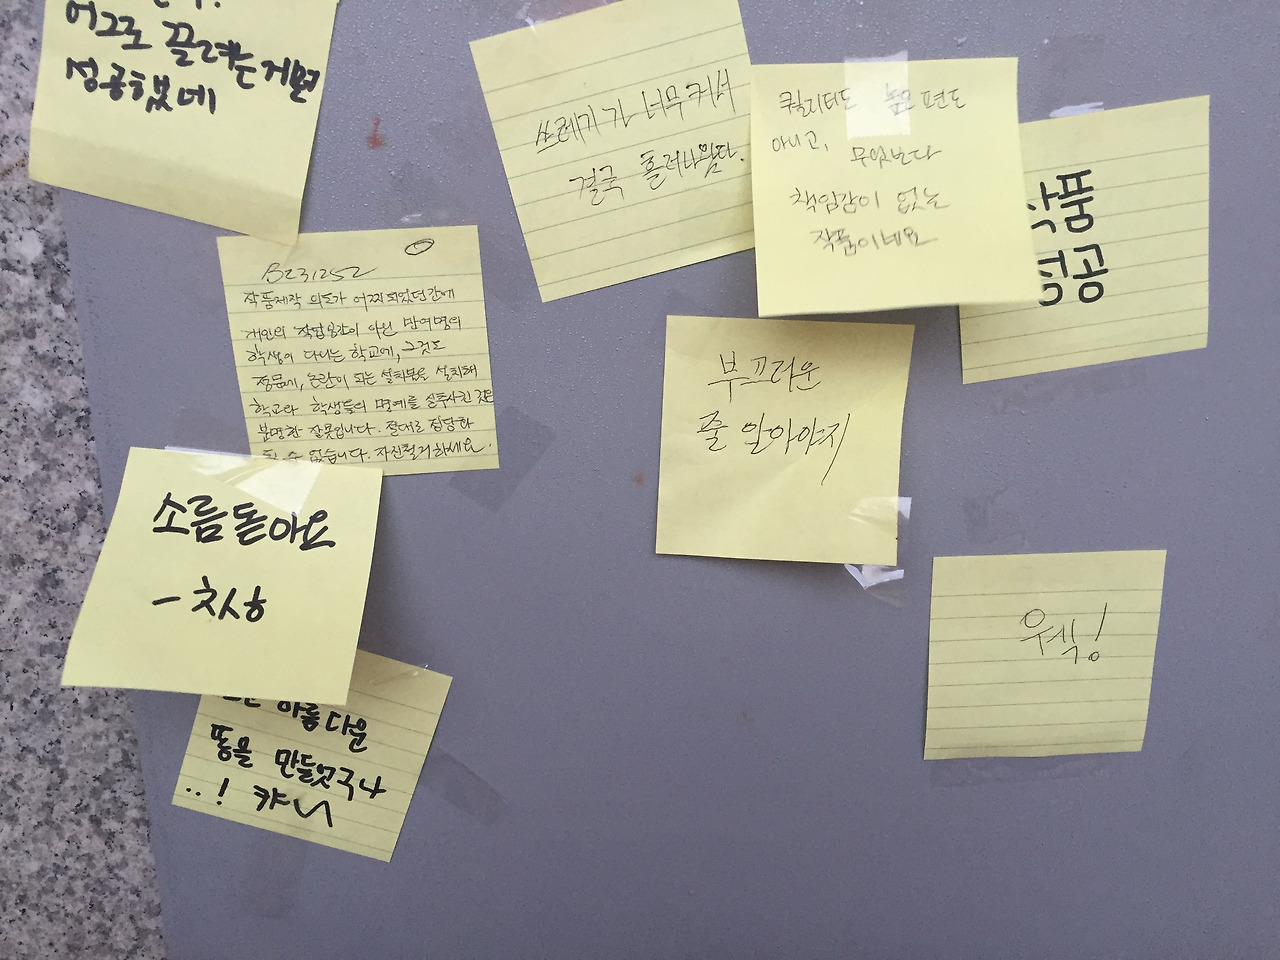 어그로 끌려는거면
성공했네
쓰레기가 너무커서
결국 흘러나왔다.
퀄리티도 높은편도
아니고, 무엇보다
책임감이 없는
작품이네요
작품
성공
B231252
작품제작 의도가 어찌되었던간에
개인의 작업공간이 아닌 만여명의
학생이 다니는 학교에, 그것도
정문에, 논란이 되는 설치물을 설치해
학교와 학생들의 명예를 실추시킨 것은
분명한 잘못입니다. 절대로 정당화
될 수 없습니다. 자진철거하세요.
부끄러운
줄 알아야지
소름돋아요
우섹!
아름다운
똥을 만들엇구나
..!